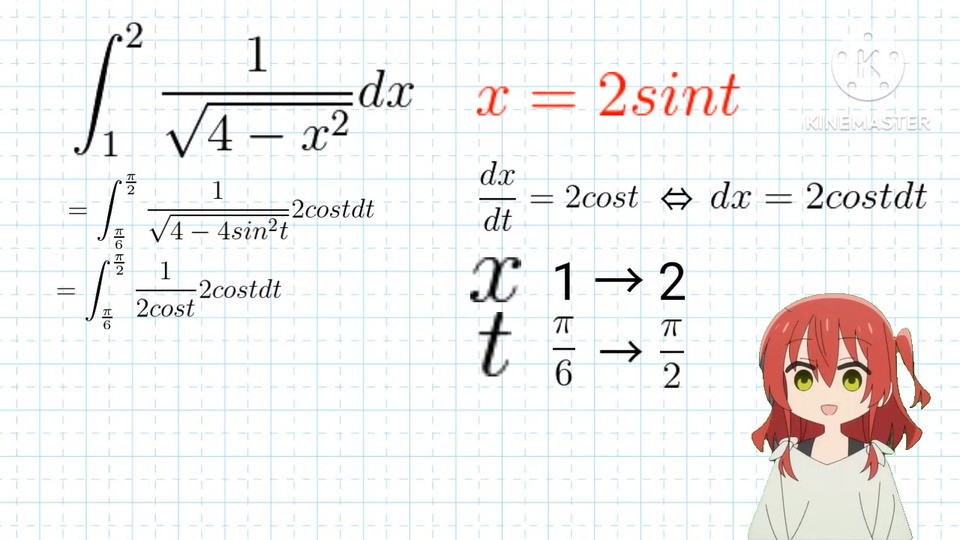 ∫₁² 1/√(4 − x²) dx
x = 2sint
K
KINEMASTER
= ∫_{π/6}^{π/2} 1/√(4 − 4sin²t) 2costdt
dx/dt = 2cost ⇔ dx = 2costdt
= ∫_{π/6}^{π/2} 1/2cost 2costdt
x 1 → 2
t π/6 → π/2